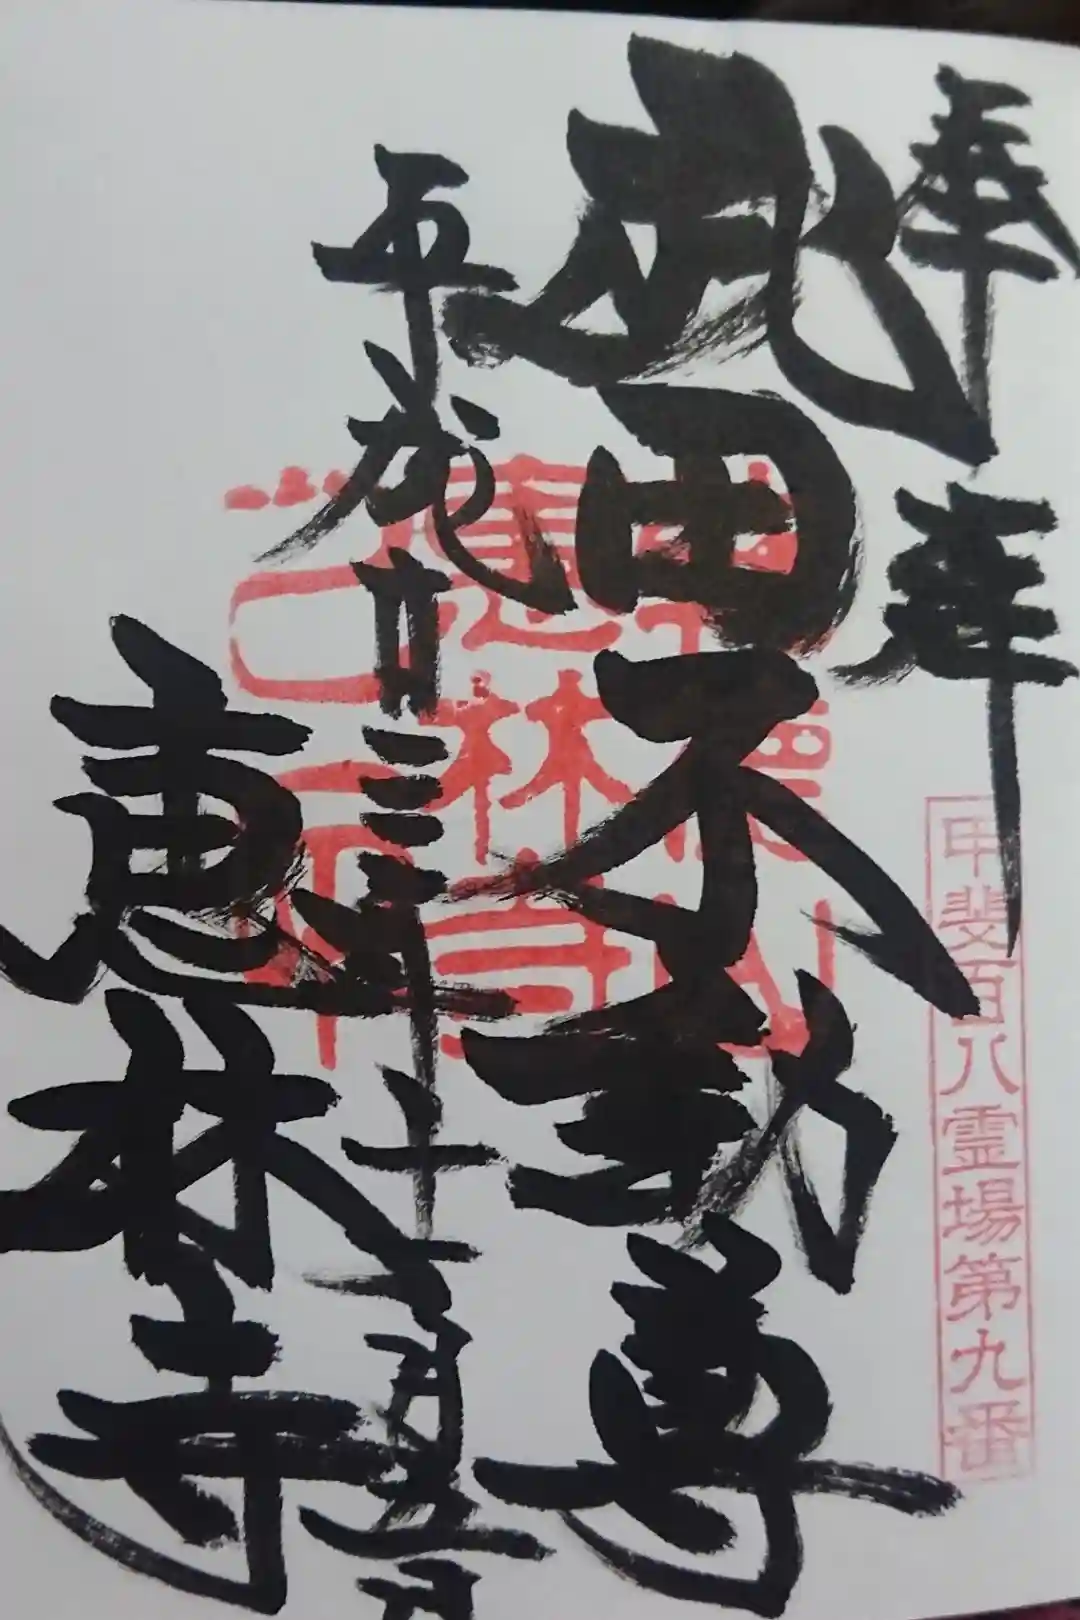 奉拝
甲斐百八霊場第九番
武田不動尊
平成廿三年十一月五日
恵林寺
恵林寺